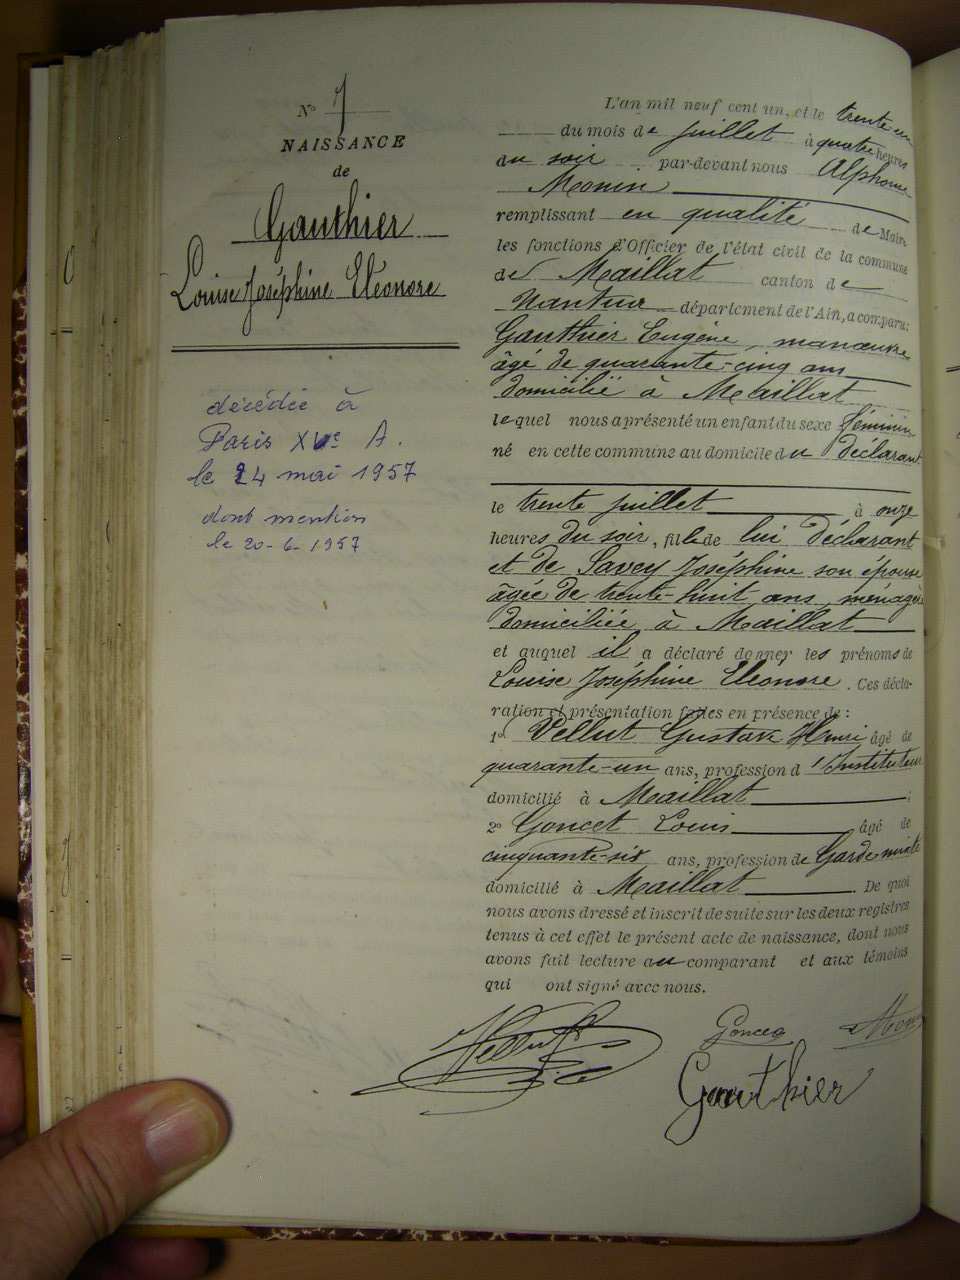 N° 7
NAISSANCE
de
Gauthier
Louise Joséphine Eléonore
décédée à
Paris XVe A.
le 24 mai 1957
dont mention
le 20-6-1957
L'an mil neuf cent un, et le trente un
du mois de juillet à quatre heures
du soir par-devant nous Alphonse
Monin
remplissant en qualité de Maire
les fonctions d'Officier de l'état civil de la commune
de Maillat canton de
Nantua département de l'Ain, a comparu:
Gauthier Eugène, manœuvre
âgé de quarante-cinq ans
domicilié à Maillat
lequel nous a présenté un enfant du sexe féminin
né en cette commune au domicile du déclarant
le trente juillet à onze
heures du soir, fille de lui déclarant
et de Savey Joséphine son épouse
âgée de trente-huit ans, ménagère
domiciliée à Maillat
et auquel il a déclaré donner les prénoms de
Louise Joséphine Eléonore. Ces décla-
ration et présentation faites en présence de:
1° Vellut Gustave Henri âgé de
quarante-un ans, profession d'Instituteur
domicilié à Maillat ;
2° Goncet Louis âgé de
cinquante-six ans, profession de Garde
domicilié à Maillat. De quoi
nous avons dressé et inscrit de suite sur les deux registres
tenus à cet effet le présent acte de naissance, dont nous
avons fait lecture au comparant et aux témoins
qui ont signé avec nous.
Vellut
Gauthier